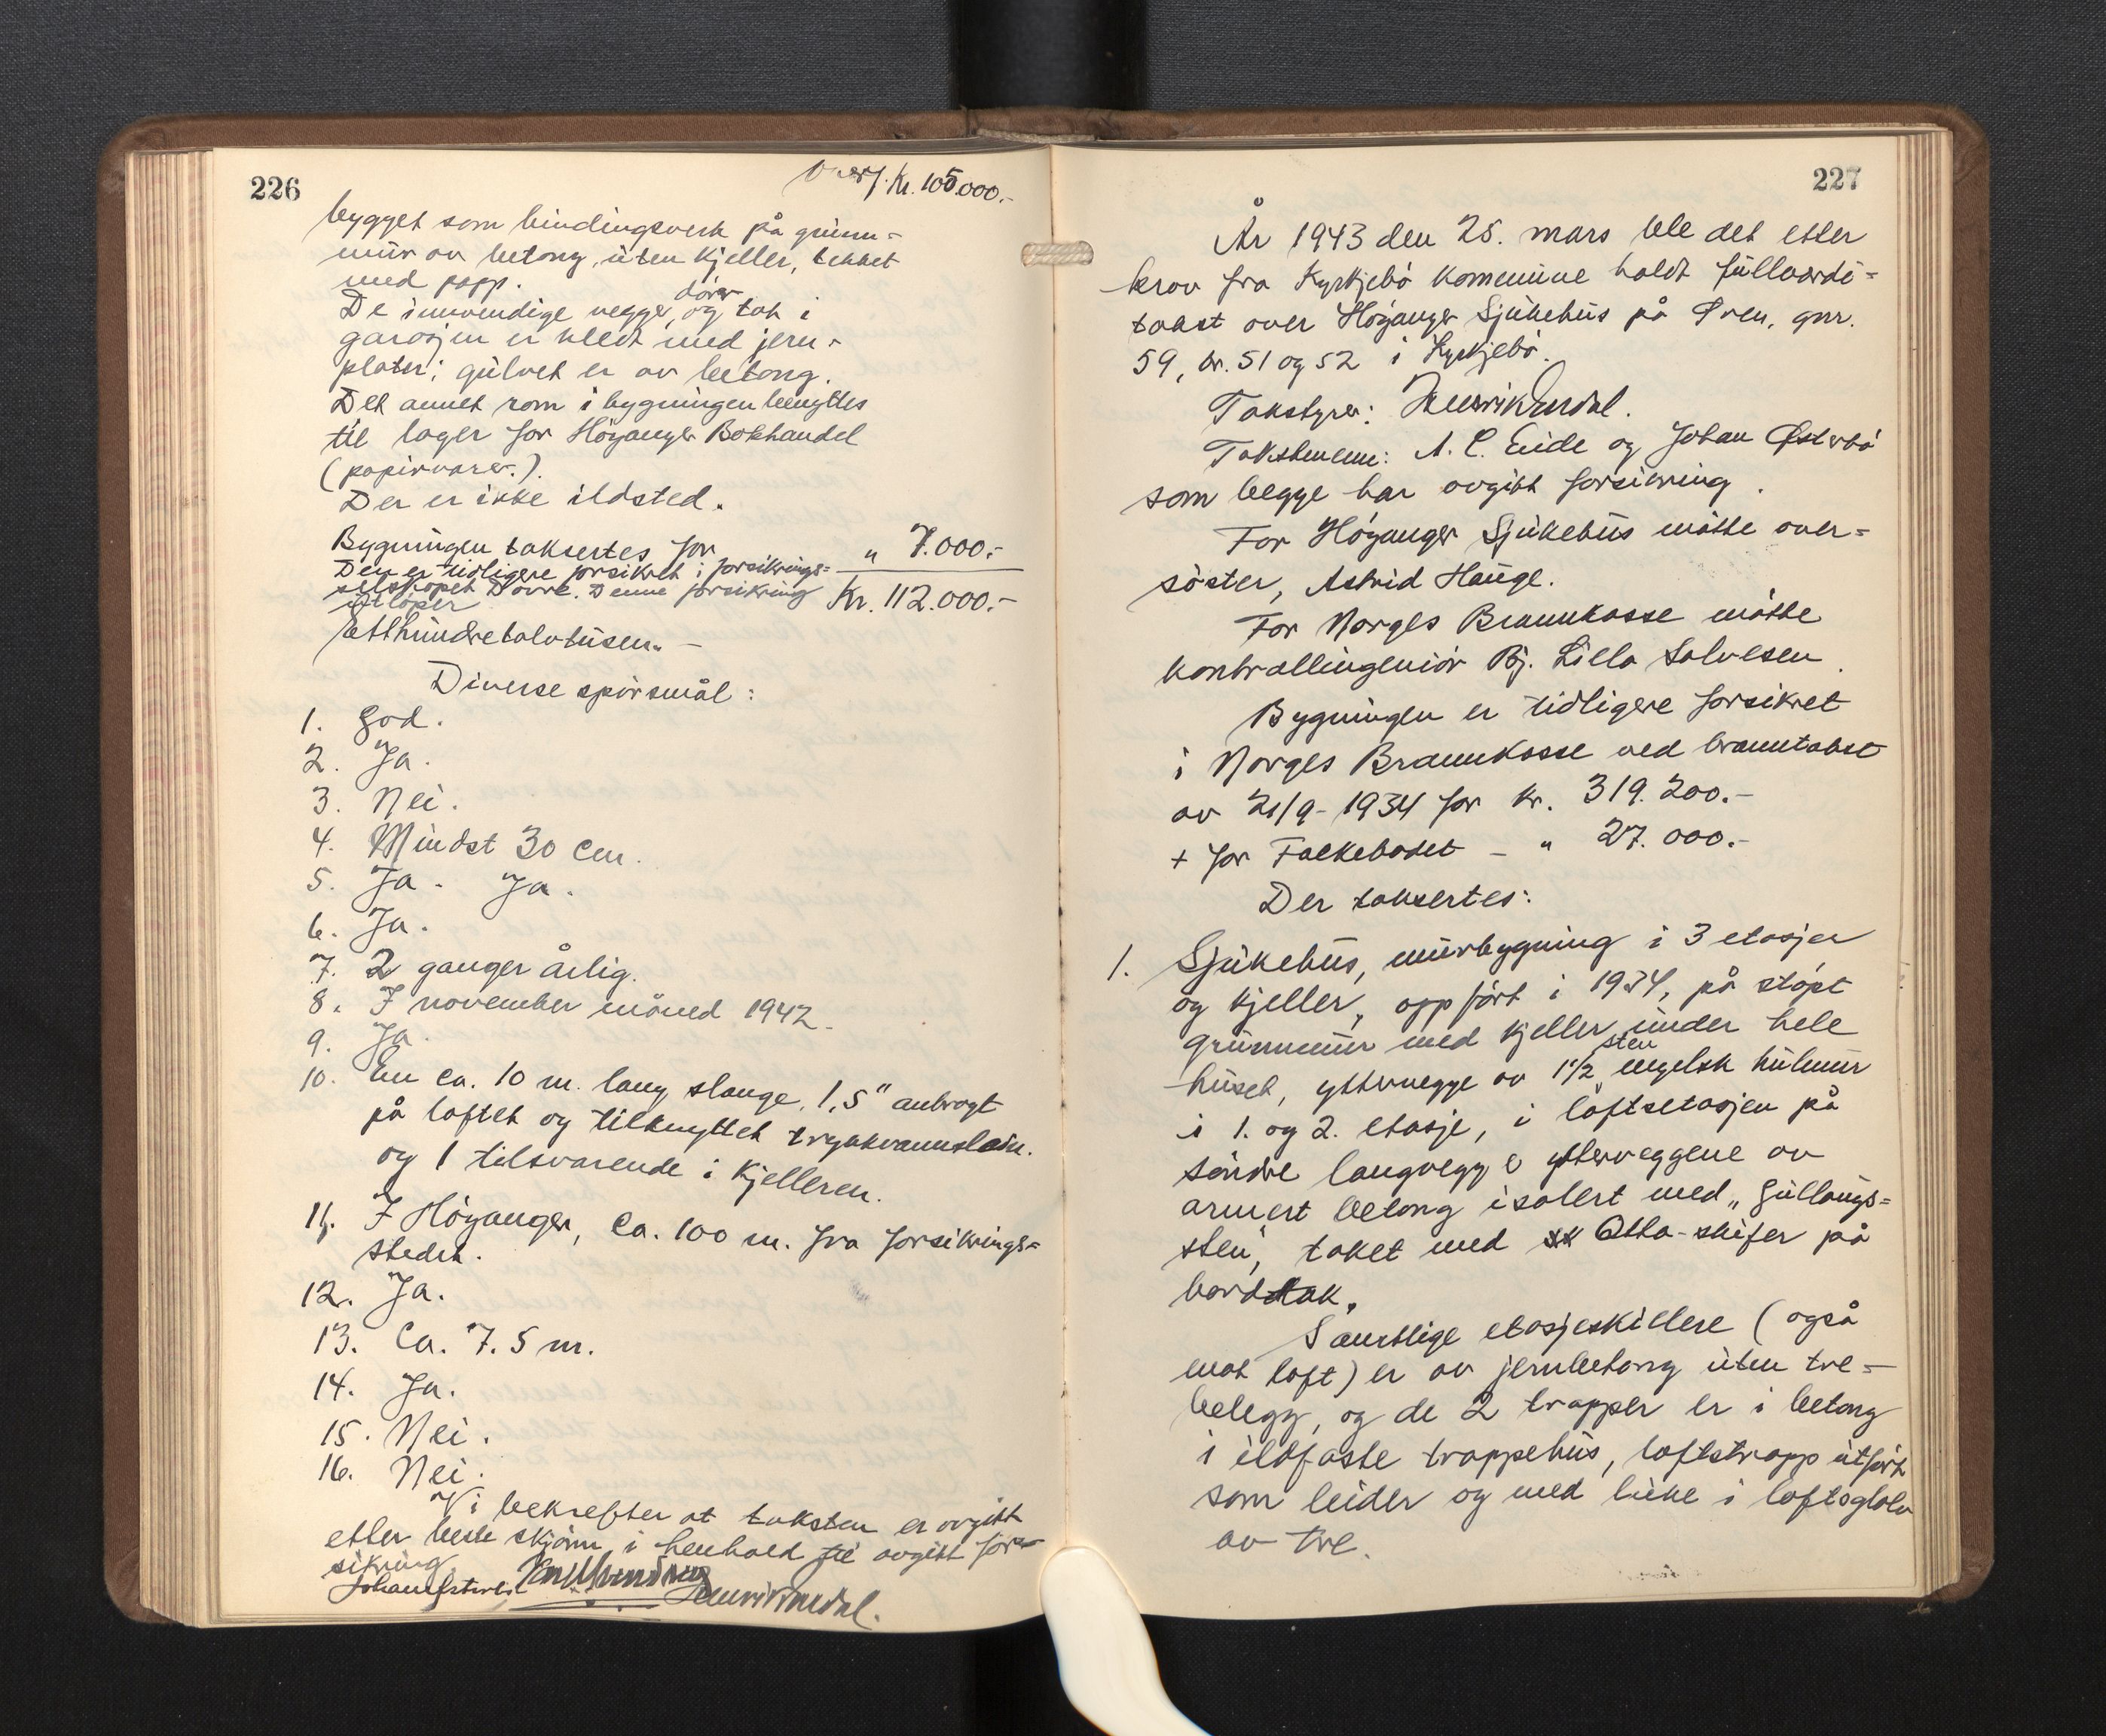 226
Overf. Kr. 105.000.-
bygget som bindingsverk på grunn-
mur av betong, uten kjeller, tekket
med papp.
De innvendige vegger, dører og tak i
garasjen er kledt med jern-
plater; gulvet er av betong.
Det annet rom i bygningen benyttes
til lager for Höyanger Bokhandel
(papirvarer.).
Der er ikke ildsted.
Bygningen taksertes for " 7.000.-
Den er tidligere forsikret i forsikrings=
selskapet Dovre. Denne forsikring
utlöper
Kr. 112.000.-
Etthundretolvtusen. -
Diverse spörsmål:
1. God.
2. Ja.
3. Nei.
4. Mindst 30 cm.
5. Ja. Ja.
6. Ja.
7. 2 ganger årlig.
8. I november måned 1942.
9. Ja.
10. En ca. 10 m. lang slange, 1,5" anbragt
på loftet og tilknyttet trykkvannsledn.
og 1 tilsvarende i kjelleren.
11. I Höyanger, ca. 100 m. fra forsikrings=
stedet.
12. Ja.
13. Ca. 7.5 m.
14. Ja.
15. Nei.
16. Nei.
Vi bekrefter at taksten er avgitt
etter beste skjönn i henhold til avgitt for-
sikring.
227
År 1943 den 25. mars ble det etter
krav fra Kyrkjebö kommune holdt fullverdi=
takst over Höyanger Sjukehus på Øren, gnr.
59, br. 51 og 52 i Kyrkjebö.
Takstyrer: Henrik
Takstmenn: A. C. Eide og Johan Østerbö
som begge har avgitt forsikring.
For Höyanger Sjukehus mötte over=
söster, Astrid Hauge.
For Norges Brannkasse mötte
kontrollingeniör Bj. Lilla Salvesen.
Bygningen er tidligere forsikret
i Norges Brannkasse ved branntakst
av 21/9-1934 for kr. 319.200.-
+ for Folkebadet - " 27.000.-
Der taksertes:
1. Sjukehus, murbygning i 3 etasjer
og kjeller, oppfört i 1934, på stöpt
grunnmur med kjeller under hele
huset, yttervegge av 1 1/2 sten engelsk hulmur
i 1. og 2. etasje, i loftsetasjen på
söndre langvegg er ytterveggene av
armert betong isolert med "Gullaugs=
sten", taket med Otta-skifer på
bordtak.
Samtlige etasjeskillere (også
mot loft) er av jernbetong uten tre=
belegg, og de 2 trapper er i betong
i ildfaste trappehus, loftstrapp utfört
som leider og med luke i loftsgolv
av tre.